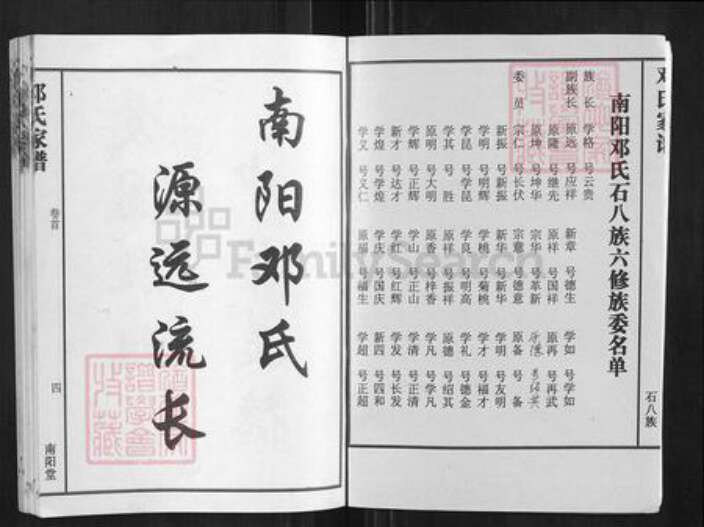 邓氏家谱
南阳邓氏石八族六修族委名单
石八族
族长 学格 号云贵 新章 号德生 学如 号学如
副族长 原远 号应祥 原祥 号国祥 原再 号再武
原隆 号继先
委员 原坤 号坤华 宗华 号革新
宗仁 号长伏 宗意 号德意 原备 号备
新振 号新振 新华 号新华 学明 号友明
学明 号明辉 学桃 号菊桃 学才 号福才
学昆 号学昆 学良 号明高 学礼 号德金
学其 号胜 原祥 号振祥 原德 号绍其
原明 号大明 原香 号梓香 学凡 号学凡
学辉 号正辉 学山 号正山 学清 号正清
新才 号达才 学红 号红辉 学发 号长发
学煌 号学煌 学庆 号国庆 新四 号四和
学义 号义仁 原福 号福生 学超 号正超
南阳邓氏
源远流长
邓氏家谱
卷首
四
南阳堂
FamilySearch